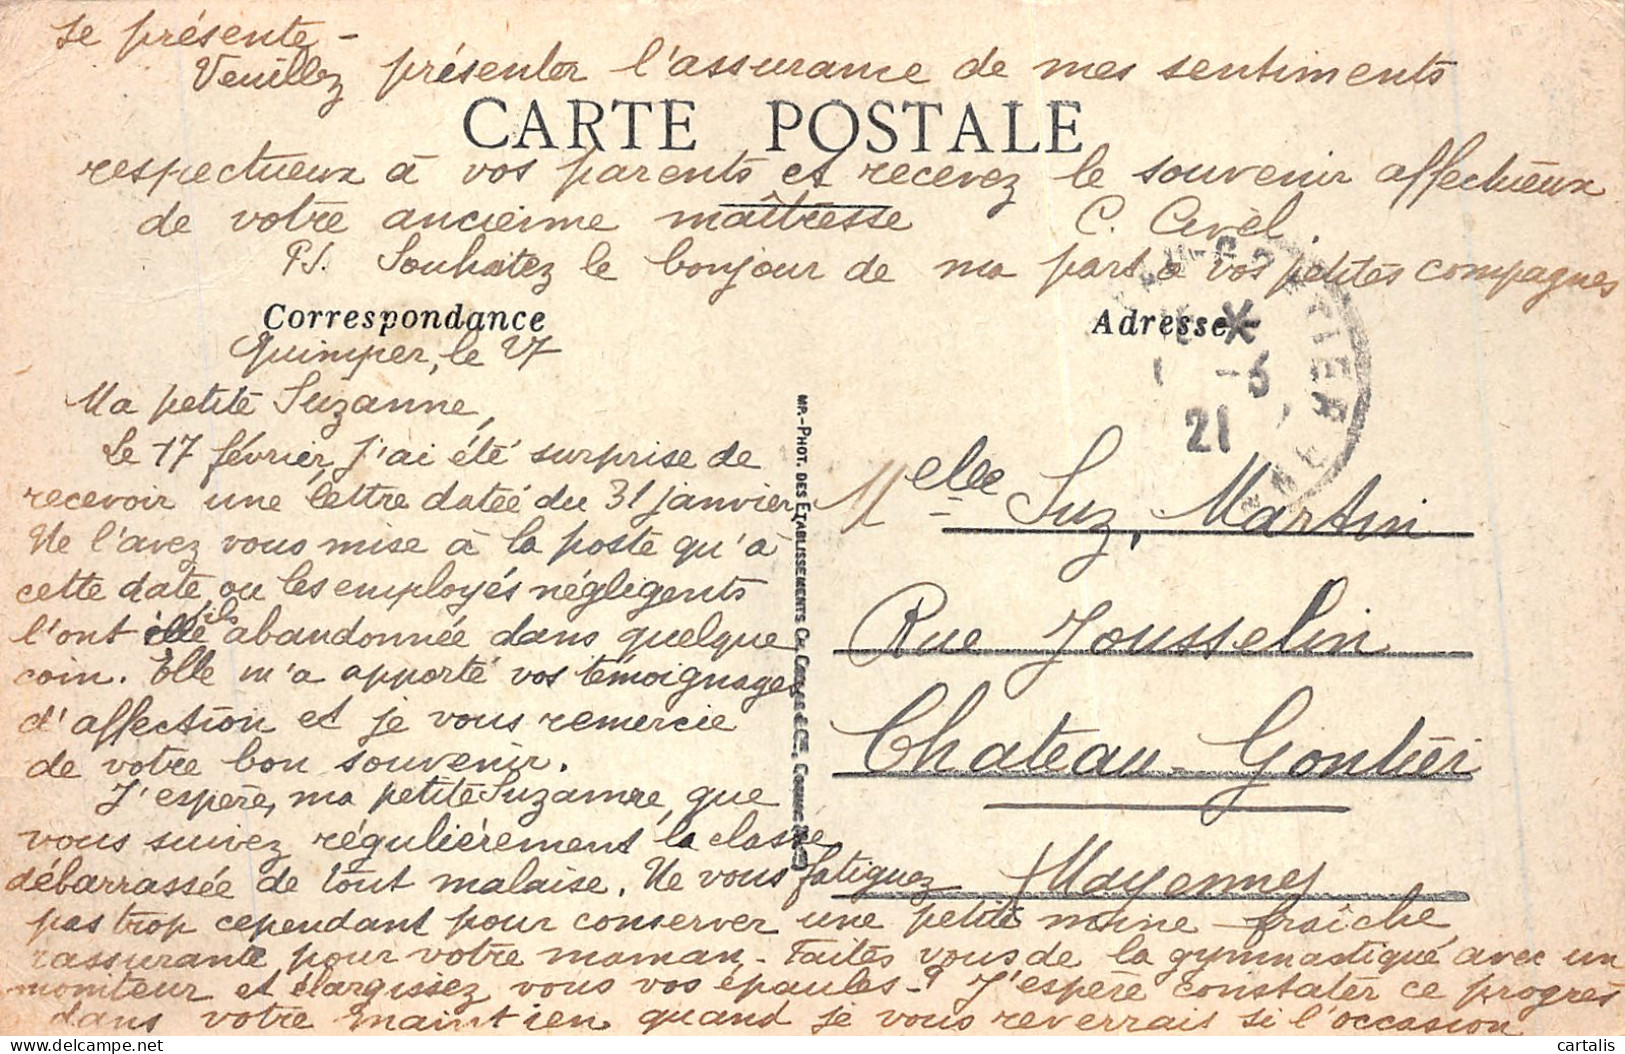 se présente -
Veuillez présenter l'assurance de mes sentiments
CARTE POSTALE
respectueux à vos parents et recevez le souvenir affectueux
de votre ancienne maîtresse C. Civel.
PS. Souhaitez le bonjour de ma part à vos petites compagnes
Correspondance
Adresse
Quimper, le 27
-3
21
Ma petite Suzanne,
Le 17 février, j'ai été surprise de
recevoir une lettre datée du 31 janvier
Ne l'avez vous mise à la poste qu'à
cette date ou les employés négligents
l'ont ils abandonnée dans quelque
coin. Elle m'a apporté vos témoignages
d'affection et je vous remercie
de votre bon souvenir.
J'espère, ma petite Suzanne, que
vous suivez régulièrement la classe
débarrassée de tout malaise. Ne vous fatiguez
pas trop cependant pour conserver une petite mine fraîche
rassurante pour votre maman - Faites vous de la gymnastique avec un
moniteur et élargissez vous vos épaules -? J'espère constater ce progrès
dans votre maintien quand je vous reverrais si l'occasion
MP.-PHOT. DES ETABLISSEMENTS CH. & CIE,
Melle Suz. Martin
Rue Jousselin
Chateau-Gontier
Mayenne
cartalis